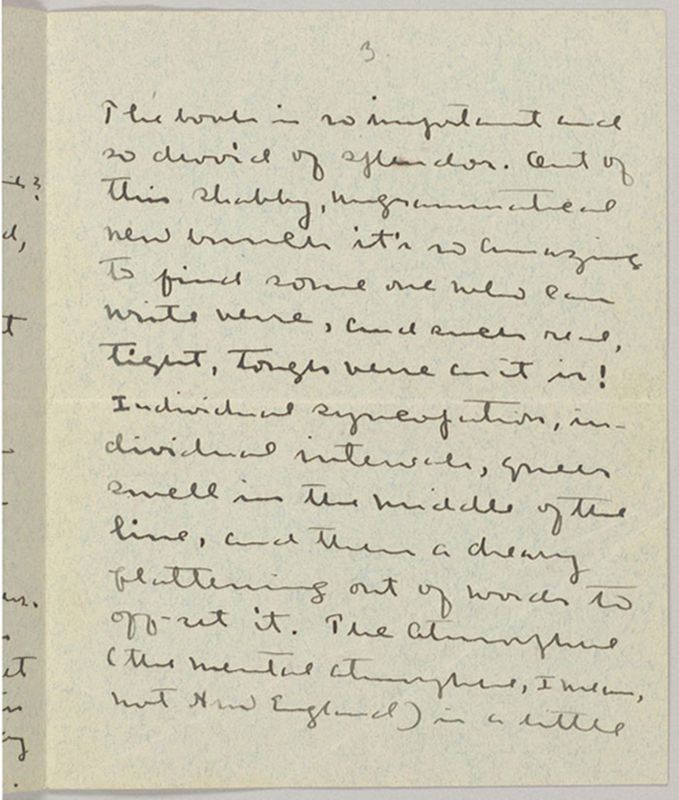 3
The book is so important and
so devoid of splendor. Out of
this shabby, ungrammatical
new bunch it's so amazing
to find some one who can
write verse, and such real,
tight, tough verse as it is!
Individual syncopation, in-
dividual intervals, queer
swell in the middle of the
line, and then a dreary
flattening out of words to
off-set it. The atmosphere
(the mental atmosphere, I mean,
not New England) is a little